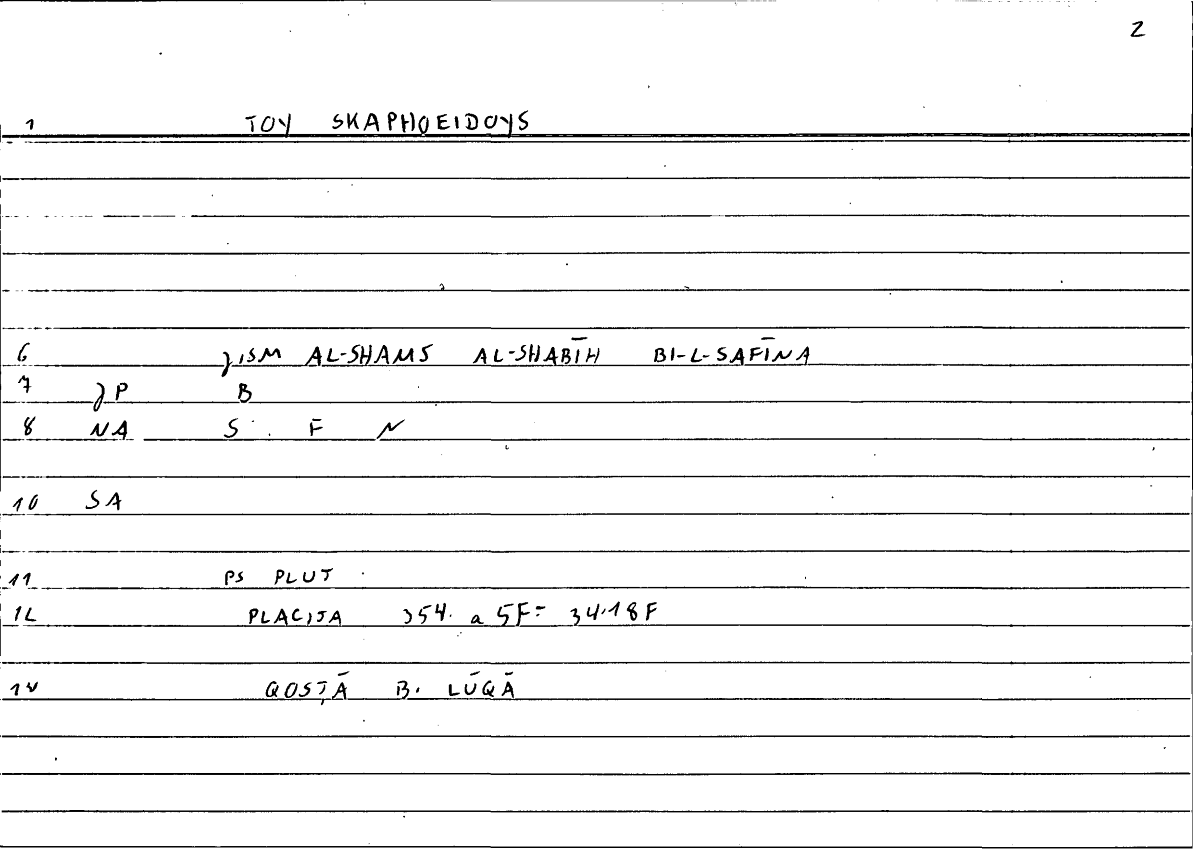 2
1 TOY SKAPHOEIDOYS
6 ǧISM AL-SHAMS AL-SHABĪH BI-L-SAFĪNA
7 P B
8 NA S F N
10 SA
11 PS PLUT
12 PLACITA 354. a 5F= 34.18F
14 QOSṬĀ B. LŪQĀ